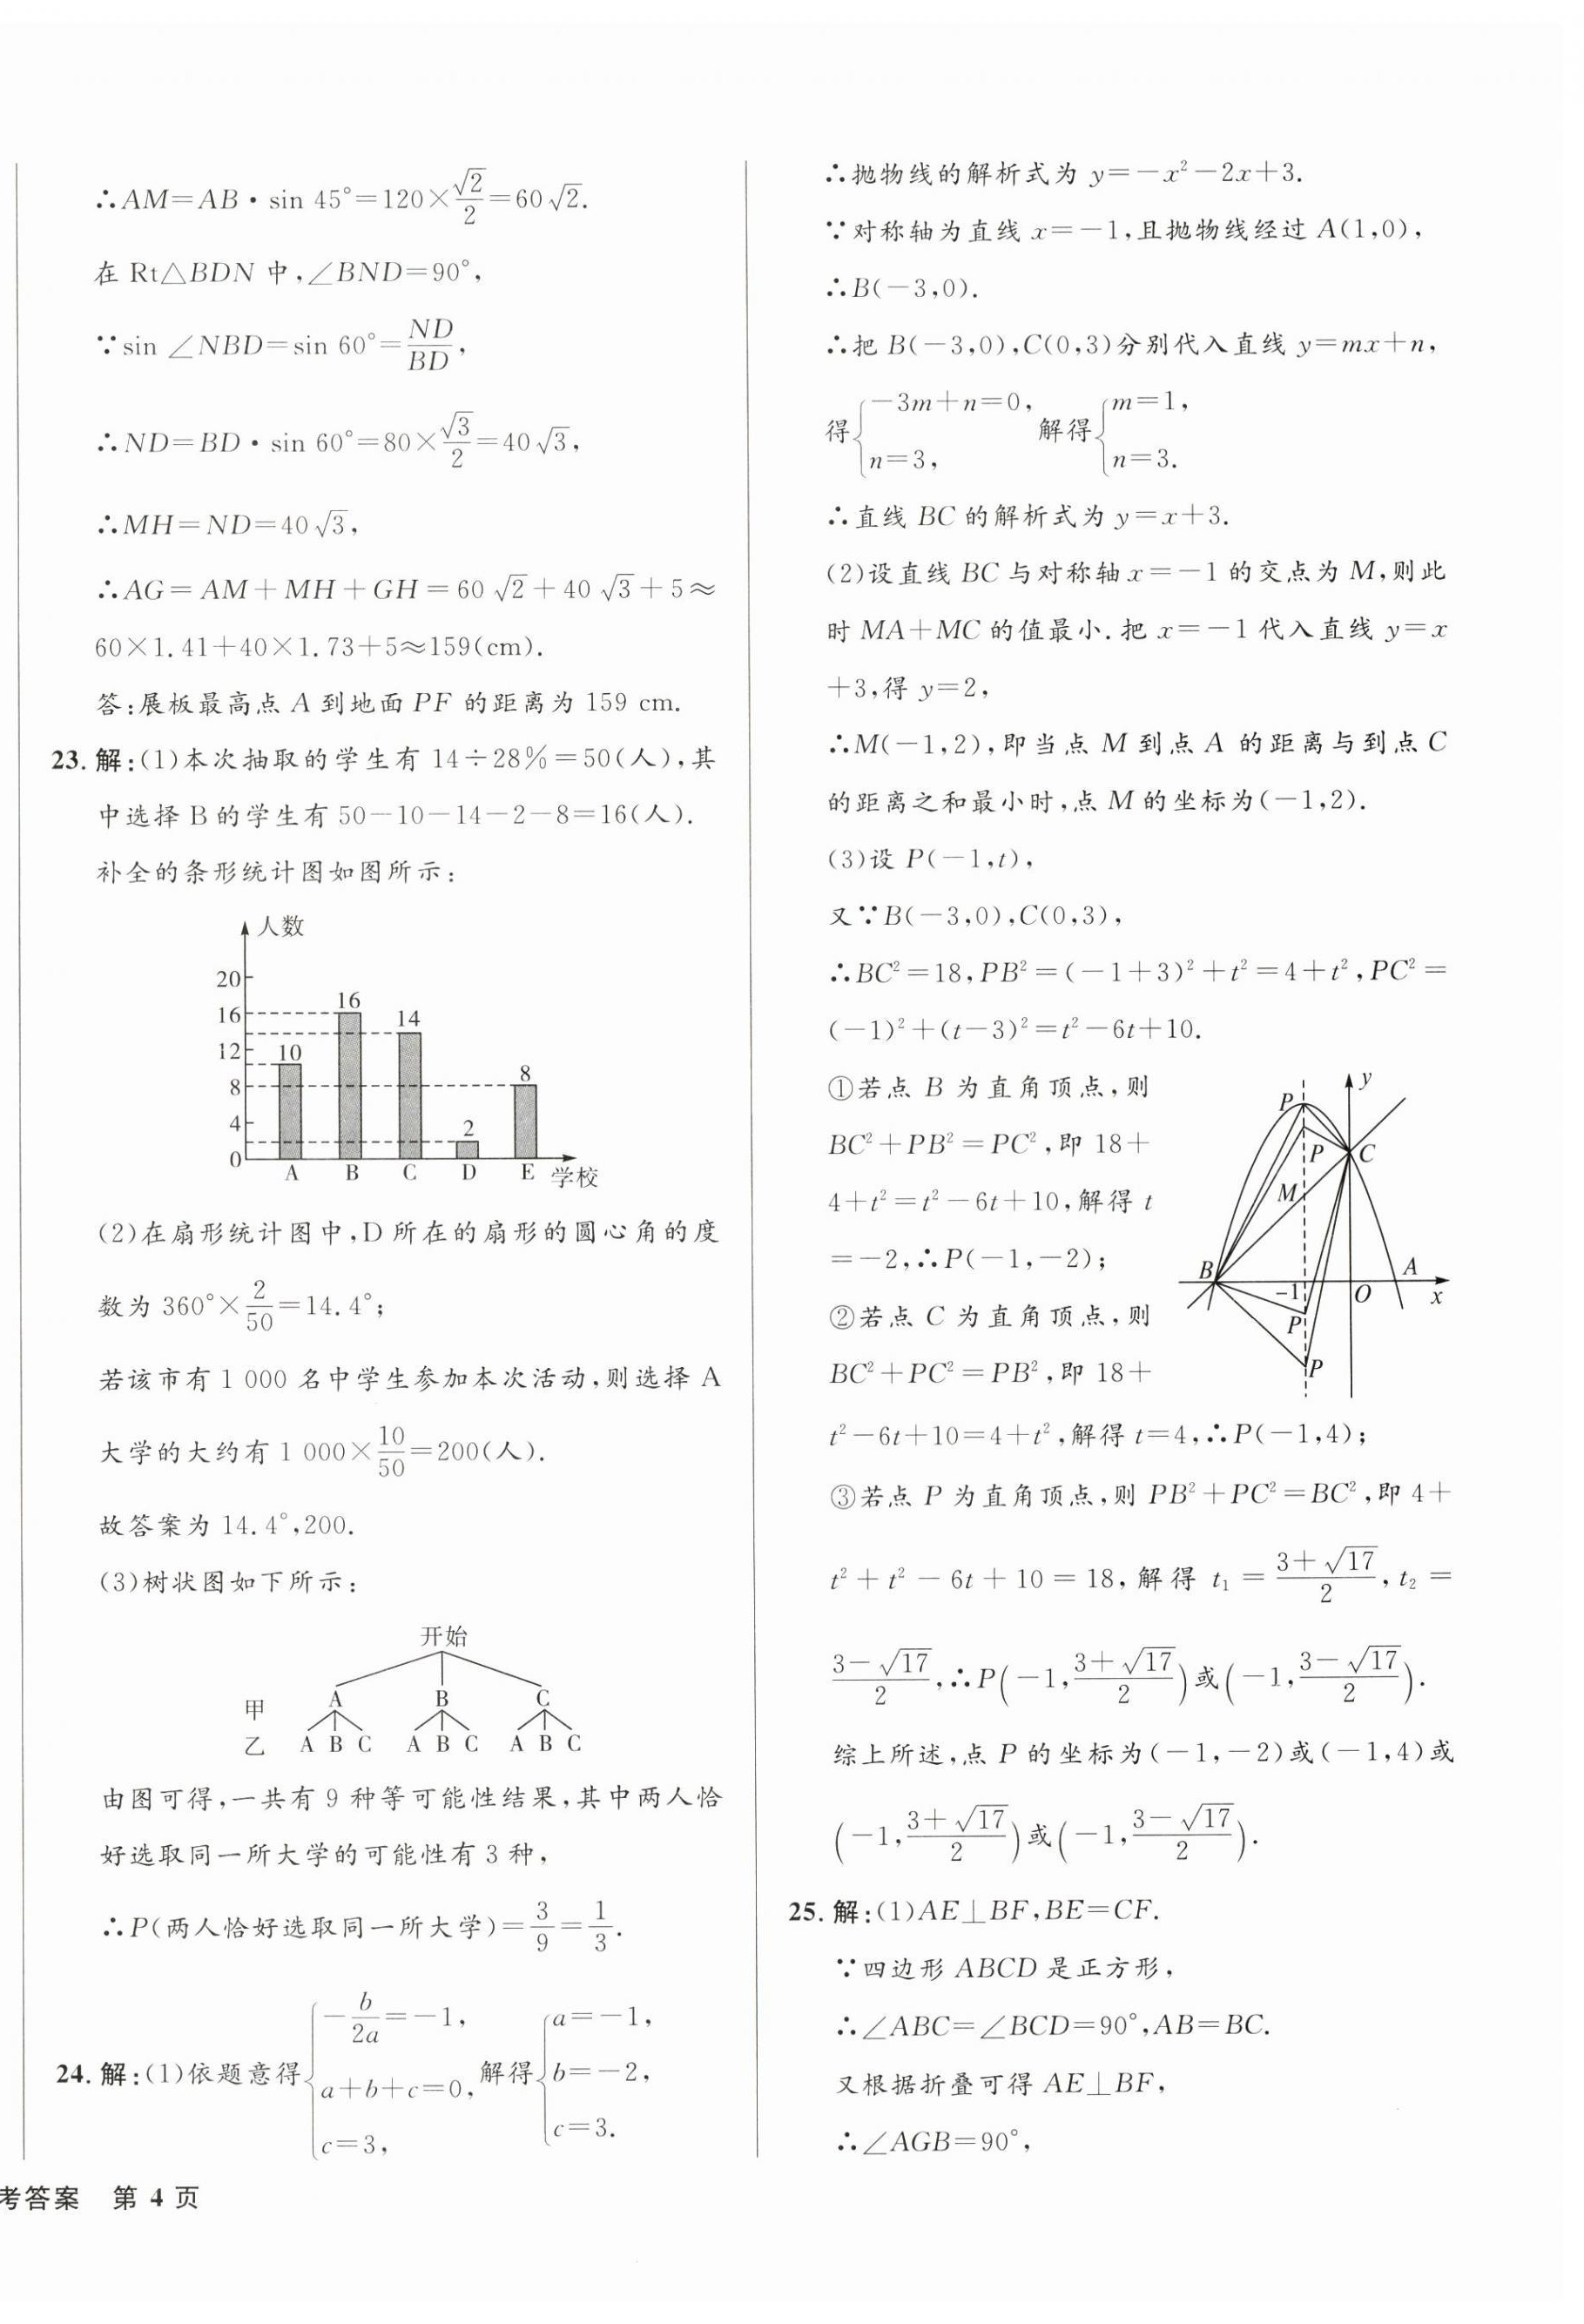 ∴AM=AB·sin 45°=120×√2/2=60√2.
在 Rt△BDN 中,∠BND=90°,
∵sin ∠NBD=sin 60°=ND/BD,
∴ND=BD·sin 60°=80×√3/2=40√3,
∴MH=ND=40√3,
∴AG=AM+MH+GH=60√2+40√3+5≈
60×1.41+40×1.73+5≈159(cm).
答:展板最高点 A 到地面 PF 的距离为 159 cm.
23. 解:(1)本次抽取的学生有 14÷28%=50(人),其
中选择 B 的学生有 50-10-14-2-8=16(人).
补全的条形统计图如图所示:
人数
20
16
12
8
4
0
10
16
14
2
8
A B C D E 学校
(2)在扇形统计图中,D 所在的扇形的圆心角的度
数为 360°×2/50=14.4°;
若该市有 1 000 名中学生参加本次活动,则选择 A
大学的大约有 1 000×10/50=200(人).
故答案为 14.4°,200.
(3)树状图如下所示:
开始
甲 A B C
乙 A B C A B C A B C
由图可得,一共有 9 种等可能性结果,其中两人恰
好选取同一所大学的可能性有 3 种,
∴P(两人恰好选取同一所大学)=3/9=1/3.
24. 解:(1)依题意得{-b/2a=-1, a+b+c=0, c=3, 解得{a=-1, b=-2, c=3.
考答案 第 4 页
∴抛物线的解析式为 y=-x²-2x+3.
∵对称轴为直线 x=-1,且抛物线经过 A(1,0),
∴B(-3,0).
∴把 B(-3,0),C(0,3)分别代入直线 y=mx+n,
得{-3m+n=0, n=3, 解得{m=1, n=3.
∴直线 BC 的解析式为 y=x+3.
(2)设直线 BC 与对称轴 x=-1 的交点为 M,则此
时 MA+MC 的值最小.把 x=-1 代入直线 y=x
+3,得 y=2,
∴M(-1,2),即当点 M 到点 A 的距离与到点 C
的距离之和最小时,点 M 的坐标为(-1,2).
(3)设 P(-1,t),
又∵B(-3,0),C(0,3),
∴BC²=18,PB²=(-1+3)²+t²=4+t²,PC²=
(-1)²+(t-3)²=t²-6t+10.
①若点 B 为直角顶点,则
BC²+PB²=PC²,即 18+
4+t²=t²-6t+10,解得 t
=-2,∴P(-1,-2);
②若点 C 为直角顶点,则
BC²+PC²=PB²,即 18+
y
P
P
C
M
B
-1
O
A
x
P
P
t²-6t+10=4+t²,解得 t=4,∴P(-1,4);
③若点 P 为直角顶点,则 PB²+PC²=BC²,即 4+
t²+t²-6t+10=18,解得 t₁=(3+√17)/2,t₂=
(3-√17)/2,∴P(-1,(3+√17)/2)或(-1,(3-√17)/2).
综上所述,点 P 的坐标为(-1,-2)或(-1,4)或
(-1,(3+√17)/2)或(-1,(3-√17)/2).
25. 解:(1)AE⊥BF,BE=CF.
∵四边形 ABCD 是正方形,
∴∠ABC=∠BCD=90°,AB=BC.
又根据折叠可得 AE⊥BF,
∴∠AGB=90°,